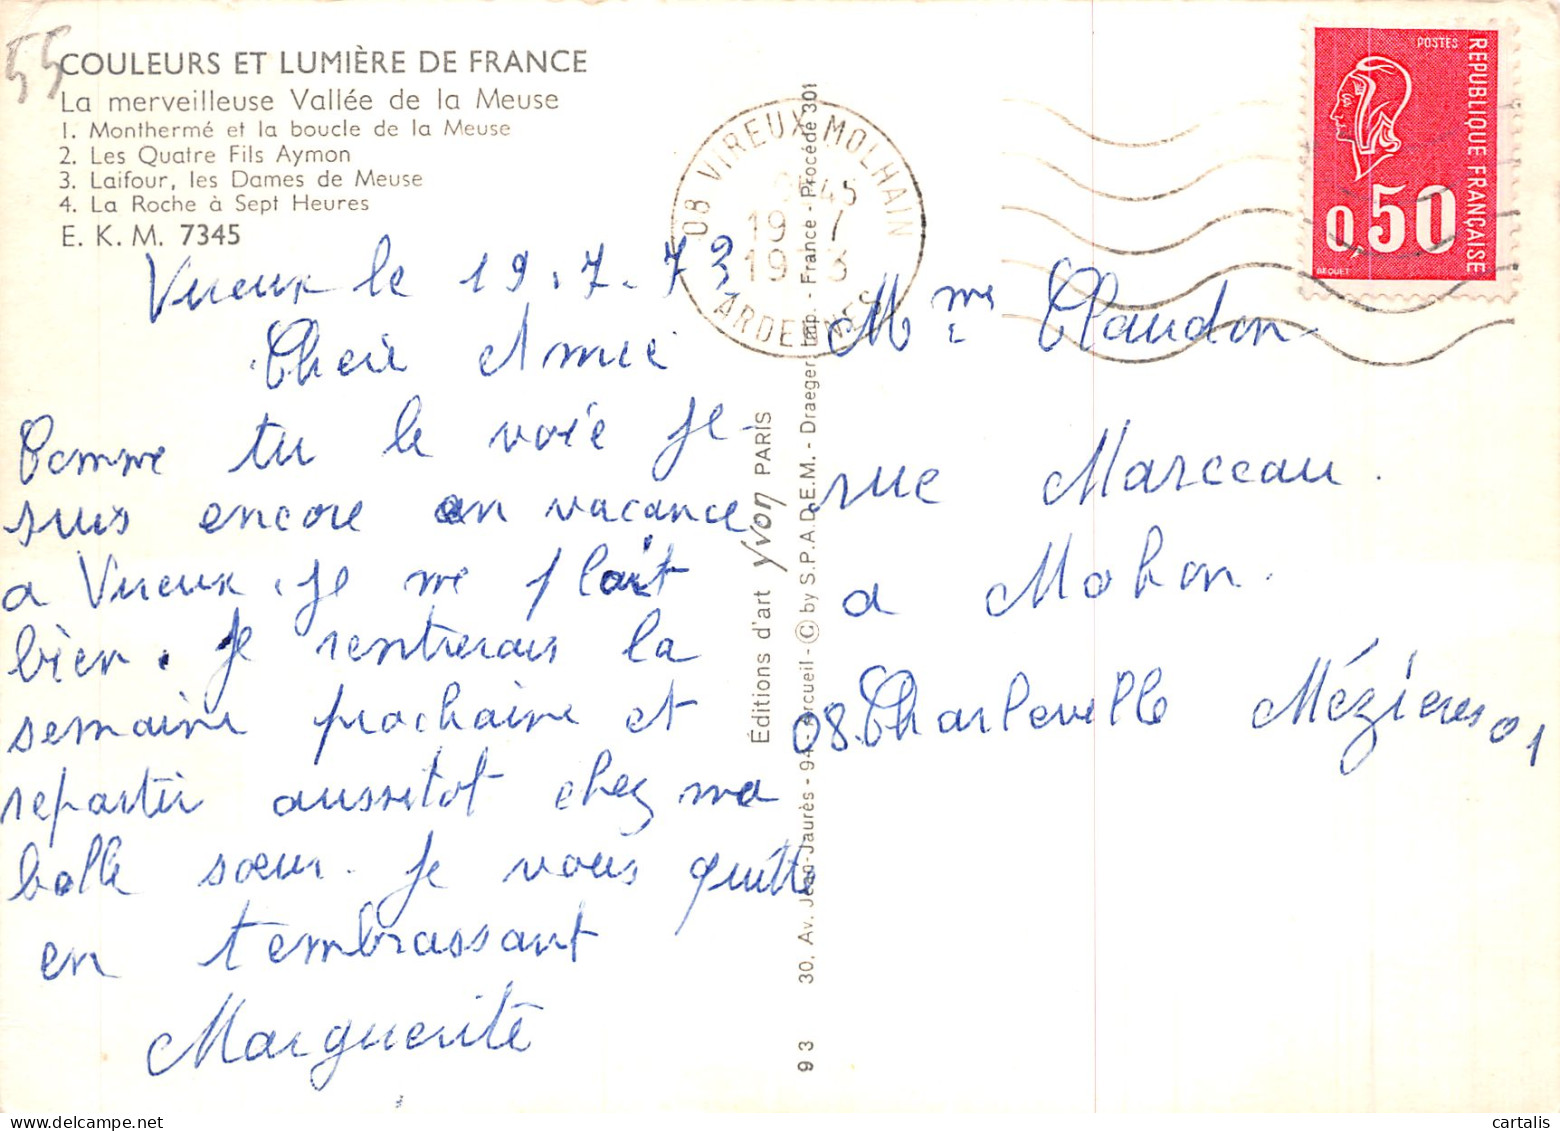 55
COULEURS ET LUMIÈRE DE FRANCE
La merveilleuse Vallée de la Meuse
1. Monthermé et la boucle de la Meuse
2. Les Quatre Fils Aymon
3. Laifour, les Dames de Meuse
4. La Roche à Sept Heures
E. K. M. 7345
Vireux le 19.7.73
Cheie Amie
Comme tu le voie je
suis encore en vacance
a Vireux. Je me plait
bien. Je rentrerais la
semaine prochaine et
repartir aussitot chez ma
belle sœur. Je vous quitte
en t'embrassant
Marguerite
Éditions d'art Yvon PARIS
30, Av. Jean-Jaurès - 94 - Arcueil - © by S.P.A.D.E.M. - Draeger, Imp. - France - Procédé 301
93
08 VIREUX-MOLHAIN
45
19 - 7
1973
ARDENNES
POSTES
REPUBLIQUE FRANÇAISE
0,50
BEQUET
Mme Claudon
rue Marceau.
a Mohon.
08. Charleville Mézieres 01
cartalis